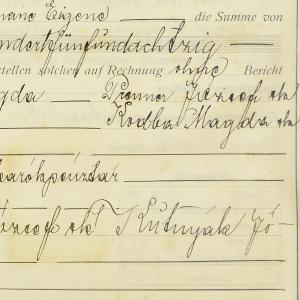 mane Eigene die Summe von
ndertfünfundachtzig
stellen solchen auf Rechnung ohne Bericht
gda Prenner József ok
Kodba Magda ok
karékpénztár
József ok Kutnyák Jó-